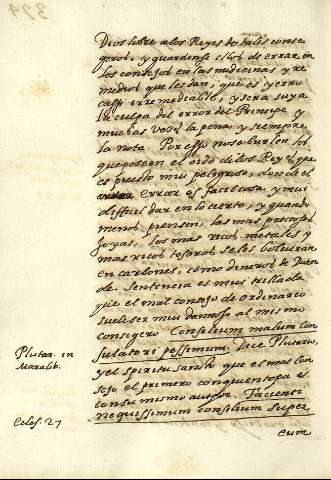 394
Dios libre alos Reyes de tales conse
geros, y guardense ellos de errar en
los consejos en las medicinas y re
medios que les dan, que es yerro
cassi irremediable, y sera suya
la culpa del error del Principe y
muchas veces la pena, y siempre
la nota. Por esso no se burlen los
que poseen el oido de los Reyes, que
es puesto mui peligroso, donde el
errar es facil cosa, y mui
difficil dar en lo cierto, y quando
menos piensen, las mas preciosas
joyas, los mas ricos metales y
mas ricos tesoros se les bolveran
en carbones, como dineros de Duen
de. Sentencia es mui trillada
que el mal consejo de ordinario
suele ser mui dañoso al mismo
consegero Consilium malum con
sulatori pessimum Dice Plutarco,
y el spiritu santo que el mal con
sejo el primero con quien topa es
con su mismo autor. Facienti
nequissimum consilium super
eum
Plutar. in
Moralib.
Eccles. 27